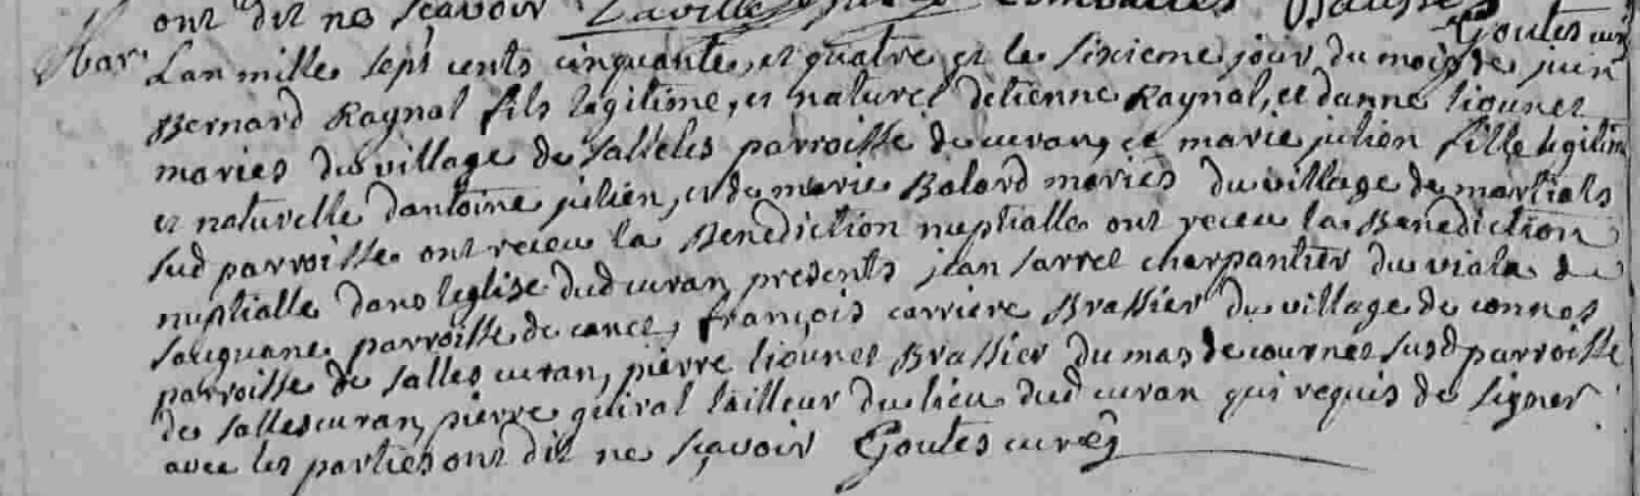 ont dit ne sçavoir Laville combalies
Goutes curé
Mar. Lan mille sept cents cinquante, et quatre et le sixieme jour du mois de juin
Bernard Raynal fils legitime, et naturel detienne Raynal, et danne liounet
maries du village de salleles parroisse de curan, et marie julien fille legitim
et naturelle dantoine julien, et de marie Balard mariés du village de martials
sud parroisse ont receu la Benediction nuptialle ont receu la Benediction
nuptialle dans leglise dud curan presents jean sarret charpantier du viala de
parroisse de canet, françois carriere Brassier du village de connes
parroisse de salles curan, pierre liounet Brassier du mas de cournet susd parroisse
de sallescuran, pierre guiral tailleur du lieu dud curan qui requis de signer
avec les parties ont dit ne sçavoir Goutes curé